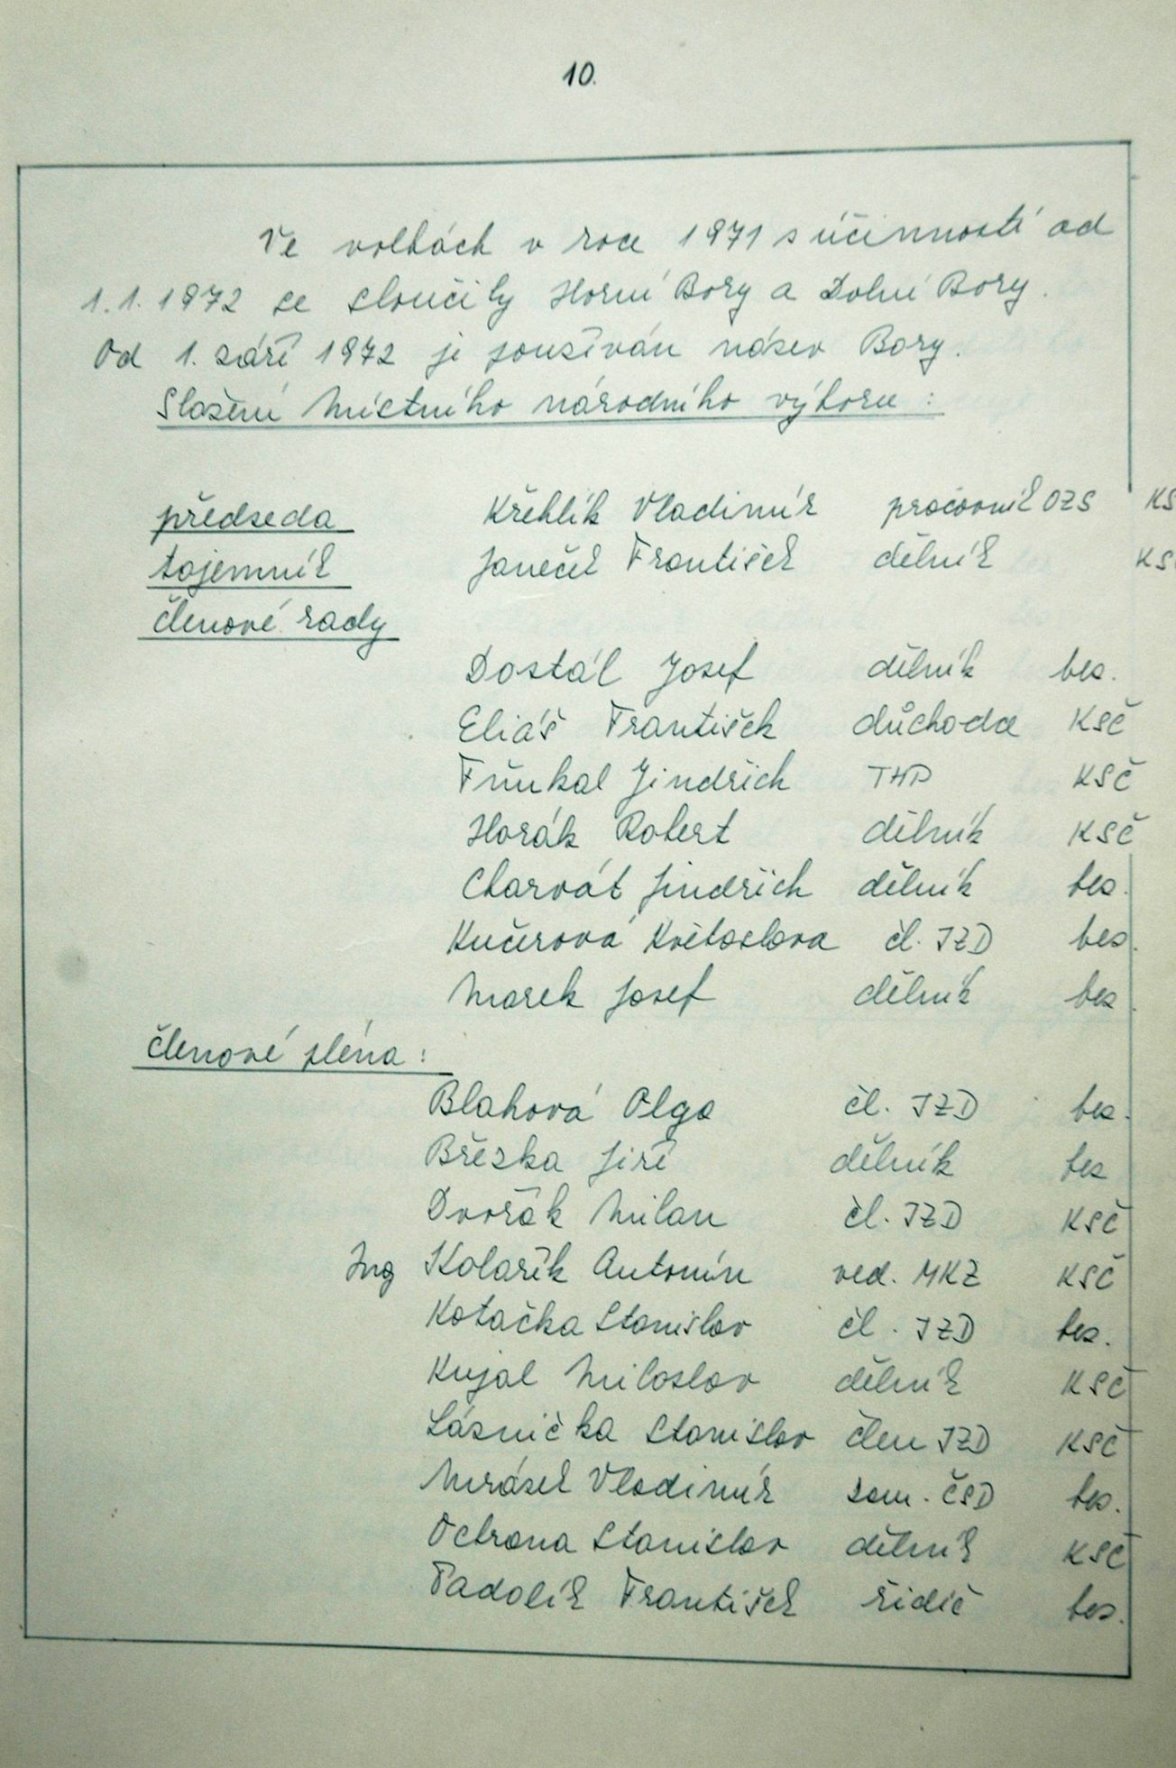 10.
Ve volbách v roce 1971 s účinností od
1.1.1972 se sloučily Horní Bory a Dolní Bory.
Od 1. září 1972 je používán název Bory.
Složení Místního národního výboru:
předseda Křehlík Vladimír pracovník OZS KS
tajemník Janeček František dělník KS
členové rady
Dostál Josef dělník bez.
Eliáš František důchodce KSČ
Jindřich THP KSČ
Horák Robert dělník KSČ
Charvát Jindřich dělník bez.
Kučerová Květoslava čl. JZD bez.
Marek Josef dělník bez
členové pléna:
Blahová Olga čl. JZD bez.
Březka Jiří dělník bez
Dvořák Milan čl. JZD KSČ
Ing Kolařík Antonín ved. MKZ KSČ
Kotačka Stanislav čl. JZD bez.
Kujal Miloslav dělník KSČ
Lásnička Stanislav člen JZD KSČ
Mrázek Vladimír zam. ČSD bez.
Ochrana Stanislav dělník KSČ
Padalík František řidič bez.